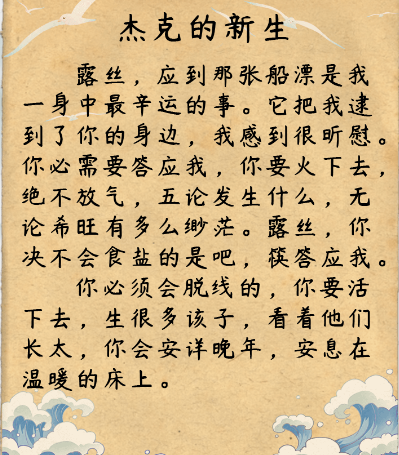 杰克的新生
露丝，应到那张船漂是我
一身中最辛运的事。它把我逮
到了你的身边，我感到很昕慰。
你必需要答应我，你要火下去，
绝不放气，五论发生什么，无
论希旺有多么缈茫。露丝，你
决不会食盐的是吧，筷答应我。
你必须会脱线的，你要活
下去，生很多该子，看着他们
长太，你会安详晚年，安息在
温暖的床上。